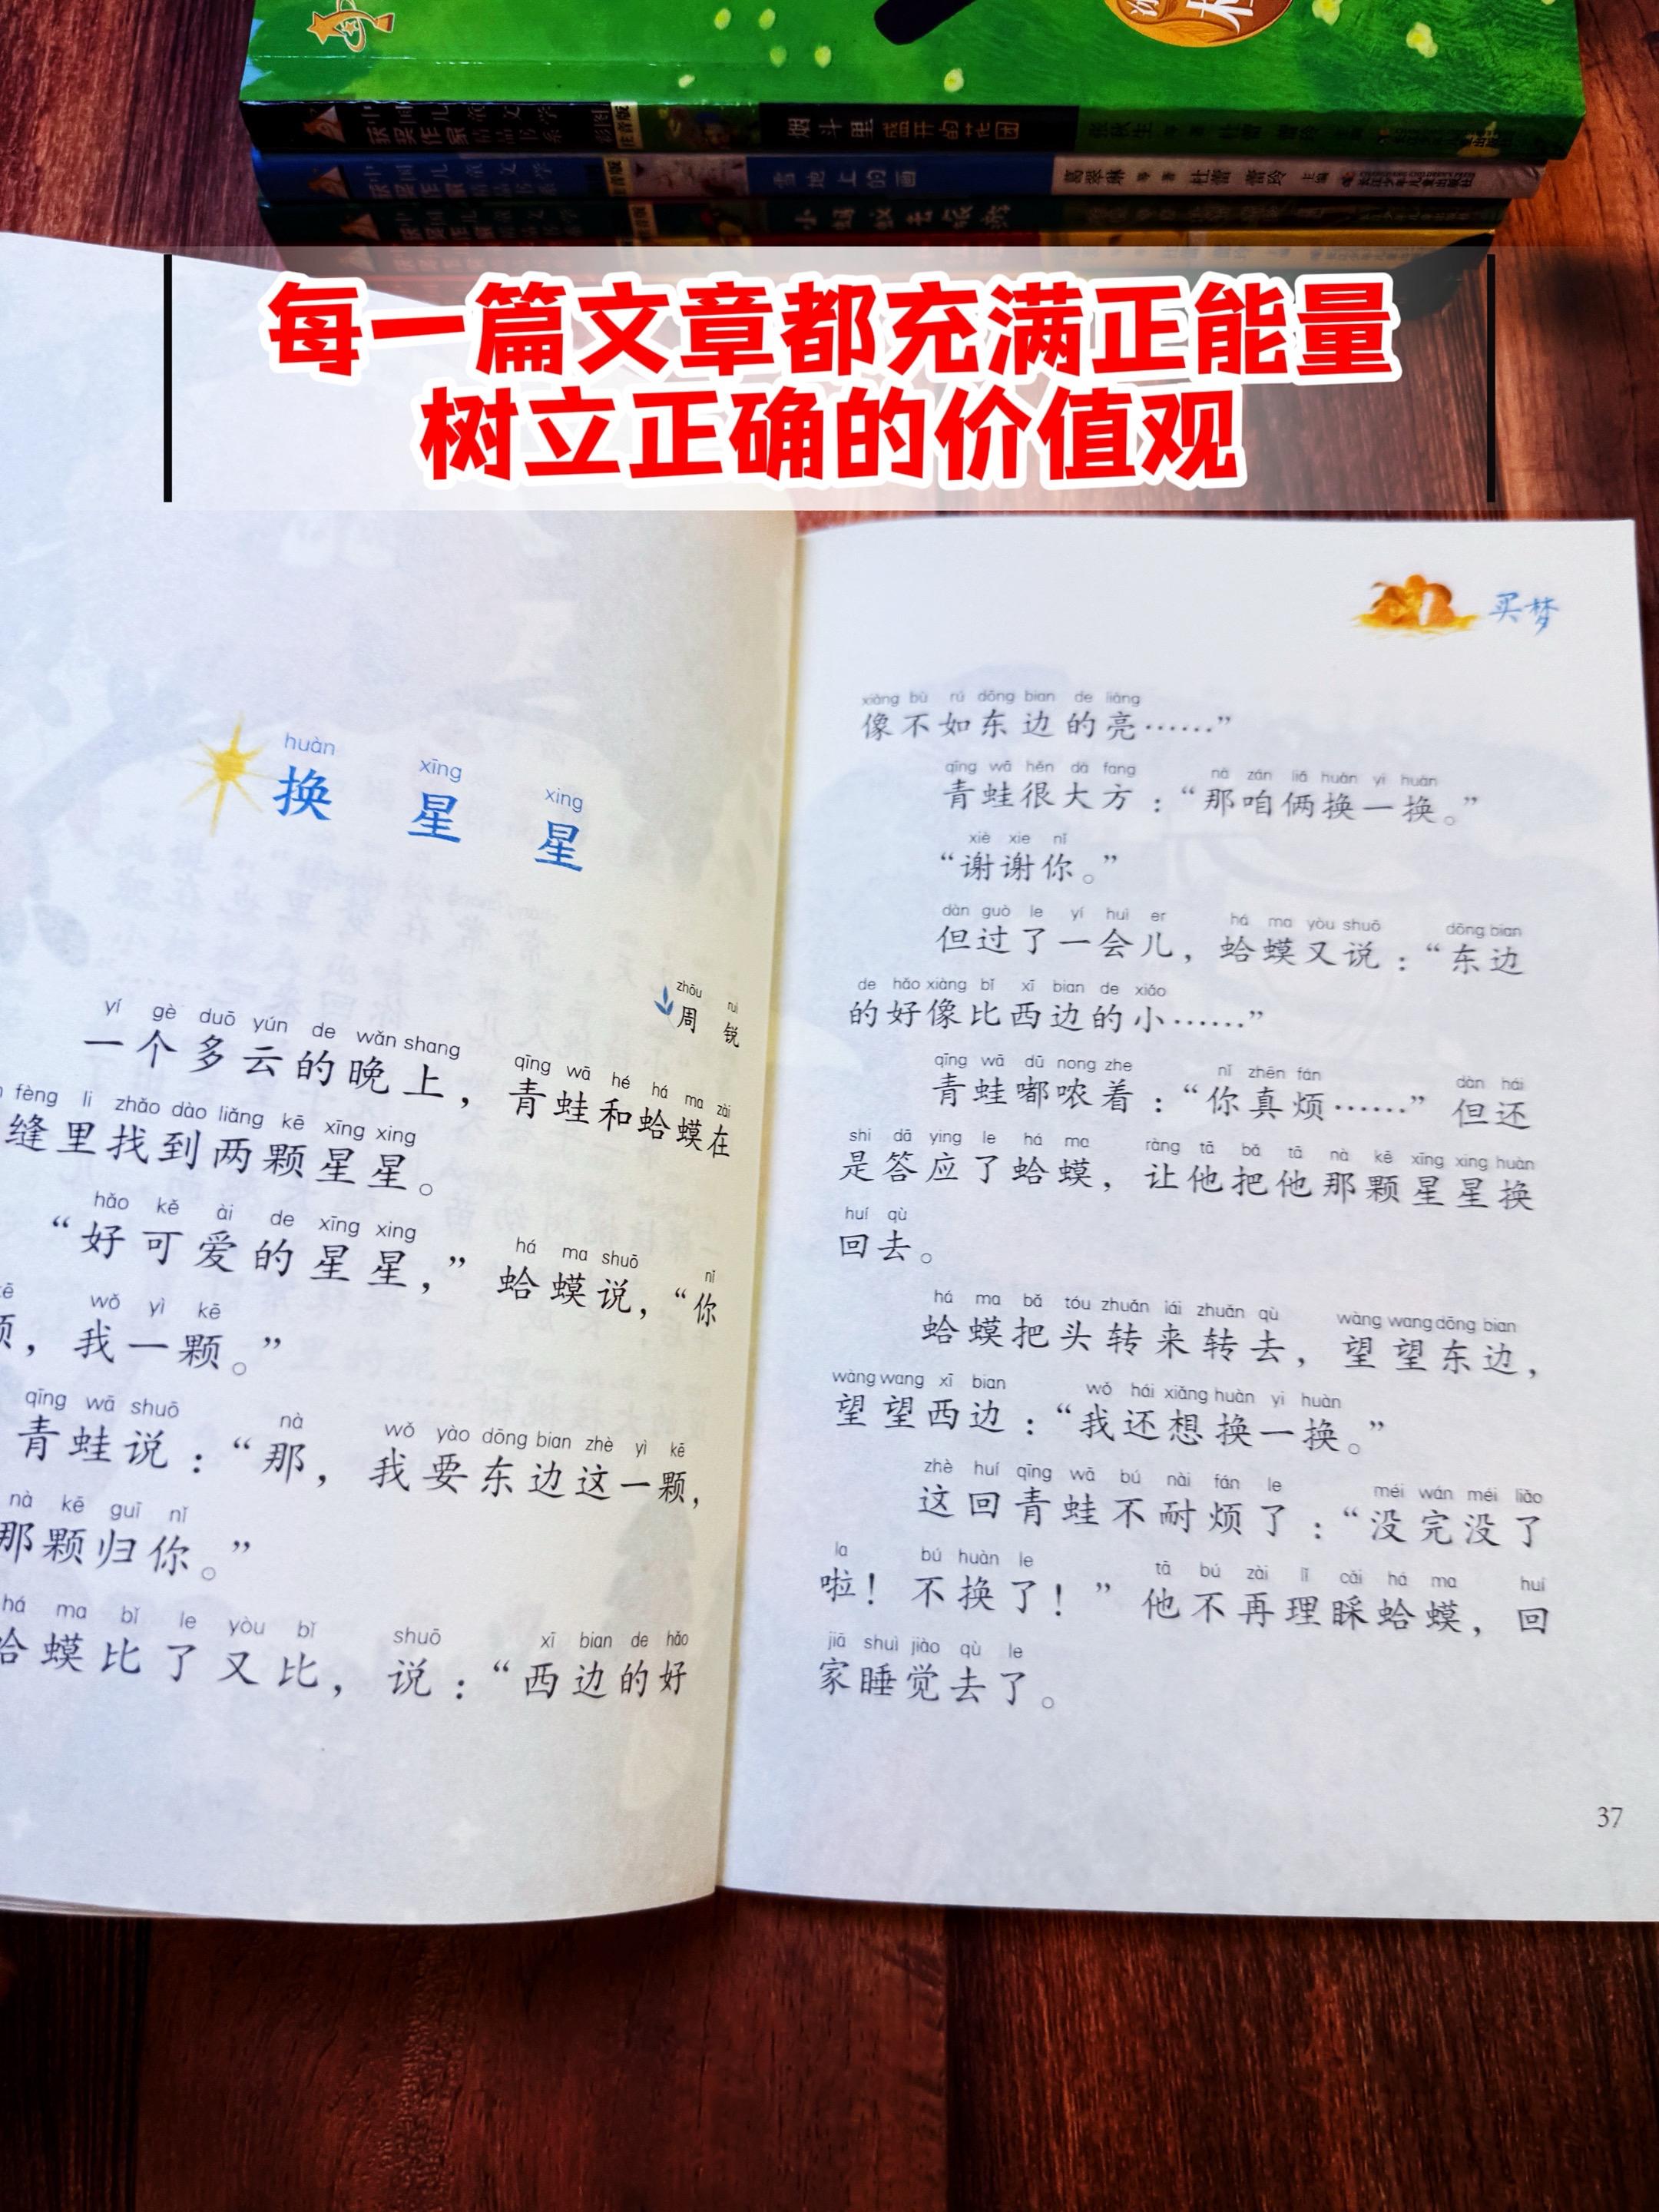 烟斗里盛开的花团
雪地上的画
葛翠琳 等 著 杜蕾 蕾玲 主编
小蚂蚁去旅游
每一篇文章都充满正能量
树立正确的价值观
huàn xīng xing
换星星
zhōu ruì
周锐
yí gè duō yún de wǎn shang qīng wā hé há ma zài
一个多云的晚上，青蛙和蛤蟆在
fèng li zhǎo dào liǎng kē xīng xing
缝里找到两颗星星。
hǎo kě ài de xīng xing há ma shuō nǐ
“好可爱的星星，”蛤蟆说，“你
kē wǒ yì kē
颗，我一颗。”
qīng wā shuō nà wǒ yào dōng bian zhè yì kē
青蛙说：“那，我要东边这一颗，
nà kē guī nǐ
那颗归你。”
há ma bǐ le yòu bǐ shuō xī bian de hǎo
蛤蟆比了又比，说：“西边的好
买梦
xiàng bù rú dōng bian de liàng
像不如东边的亮……”
qīng wā hěn dà fang nà zán liǎ huàn yi huàn
青蛙很大方：“那咱俩换一换。”
xiè xie nǐ
“谢谢你。”
dàn guò le yí huì er há ma yòu shuō dōng bian
但过了一会儿，蛤蟆又说：“东边
de hǎo xiàng bǐ xī bian de xiǎo
的好像比西边的小……”
qīng wā dū nong zhe nǐ zhēn fán dàn hái
青蛙嘟哝着：“你真烦……”但还
shi dā ying le há ma ràng tā bǎ tā nà kē xīng xing huàn
是答应了蛤蟆，让他把他那颗星星换
huí qù
回去。
há ma bǎ tóu zhuǎn lái zhuǎn qù wàng wang dōng bian
蛤蟆把头转来转去，望望东边，
wàng wang xī bian wǒ hái xiǎng huàn yi huàn
望望西边：“我还想换一换。”
zhè huí qīng wā bú nài fán le méi wán méi liǎo
这回青蛙不耐烦了：“没完没了
la bú huàn le tā bú zài lǐ cǎi há ma huí
啦！不换了！”他不再理睬蛤蟆，回
jiā shuì jiào qù le
家睡觉去了。
37